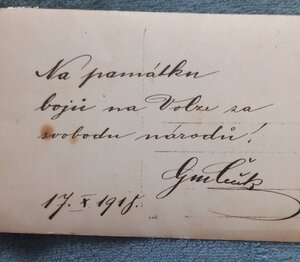 Na památku
bojů na Volze za
svobodu národů!
17. X 1918.